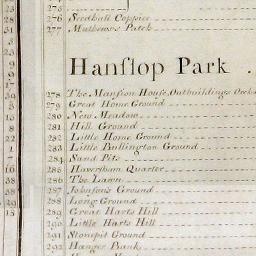 276 Seedhill Coppice
277 Mathews's Patch
Hanslop Park
278 The Mansion House, Outbuildings Orch
279 Great Home Ground
280 New Meadow
281 Hill Ground
282 Little Home Ground
283 Little Bullington Ground
284 Sand Pits
285 Haversham Quarter
286 The Lawn
287 Johnson's Ground
288 Long Ground
289 Great Harts Hill
290 Little Harts Hill
291 Stonepit Ground
292 Hanger Bank